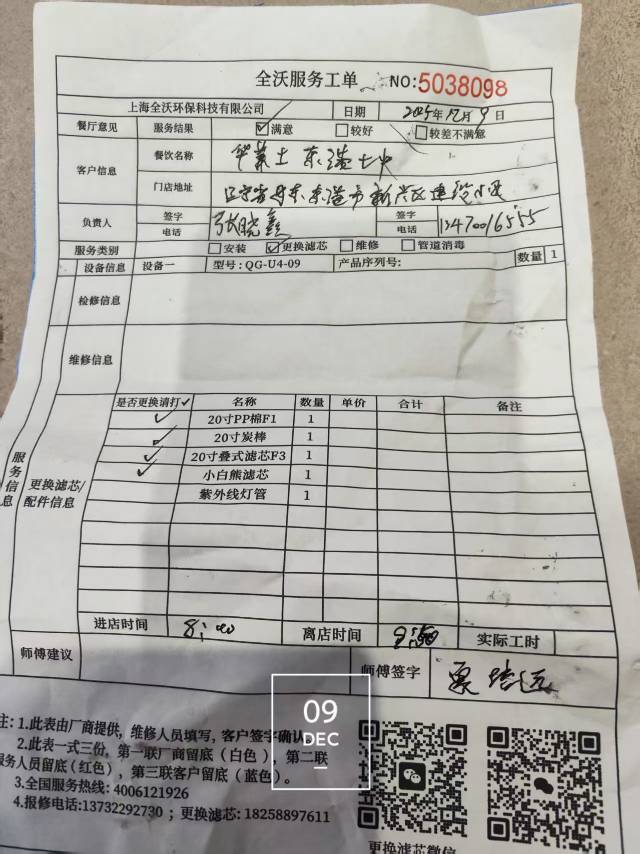 全沃服务工单 NO:5038098
上海全沃环保科技有限公司 日期 2025年12月9日
餐厅意见 服务结果 ☑满意 □较好 □较差不满意
客户信息 餐饮名称 华莱士 东港
门店地址 辽宁省丹东东港市新兴区建安小区
负责人 签字 电话 张晓鑫 签字 电话 13470016555
服务类别 □安装 ☑更换滤芯 □维修 □管道消毒
设备信息 设备一 型号: QG-U4-09 产品序列号: 数量 1
检修信息
维修信息
服务信息 更换滤芯/配件信息
是否更换请打✓ 名称 数量 单价 合计 备注
✓ 20寸PP棉F1 1
✓ 20寸炭棒 1
✓ 20寸叠式滤芯F3 1
✓ 小白熊滤芯 1
紫外线灯管 1
进店时间 8:00 离店时间 实际工时
师傅建议 师傅签字
09
DEC
注: 1.此表由厂商提供，维修人员填写，客户签字确认
2.此表一式三份，第一联厂商留底（白色），第二联
服务人员留底(红色)，第三联客户留底（蓝色）。
3.全国服务热线: 4006121926
4.报修电话:13732292730；更换滤芯: 18258897611
更换滤芯微信